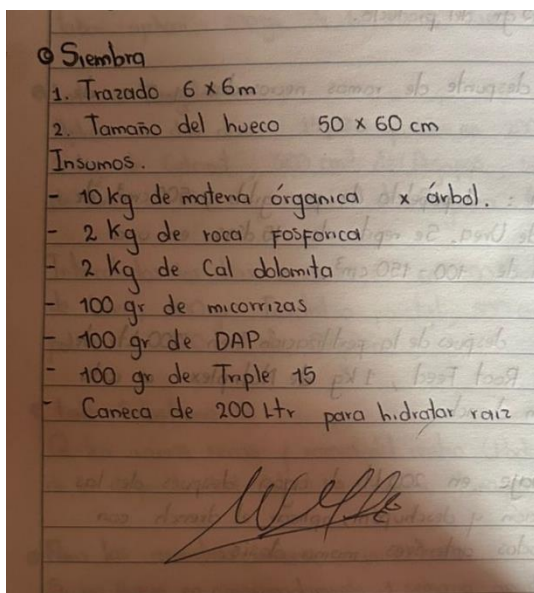 Siembra
1. Trazado 6 x 6 m
2. Tamaño del hueco 50 x 60 cm
Insumos.
- 10 kg de materia órganica x árbol.
- 2 kg de roca fosforica
- 2 kg de Cal dolomita
- 100 gr de micorrizas
- 100 gr de DAP
- 100 gr de Triple 15
- Caneca de 200 Ltr para hidratar raiz